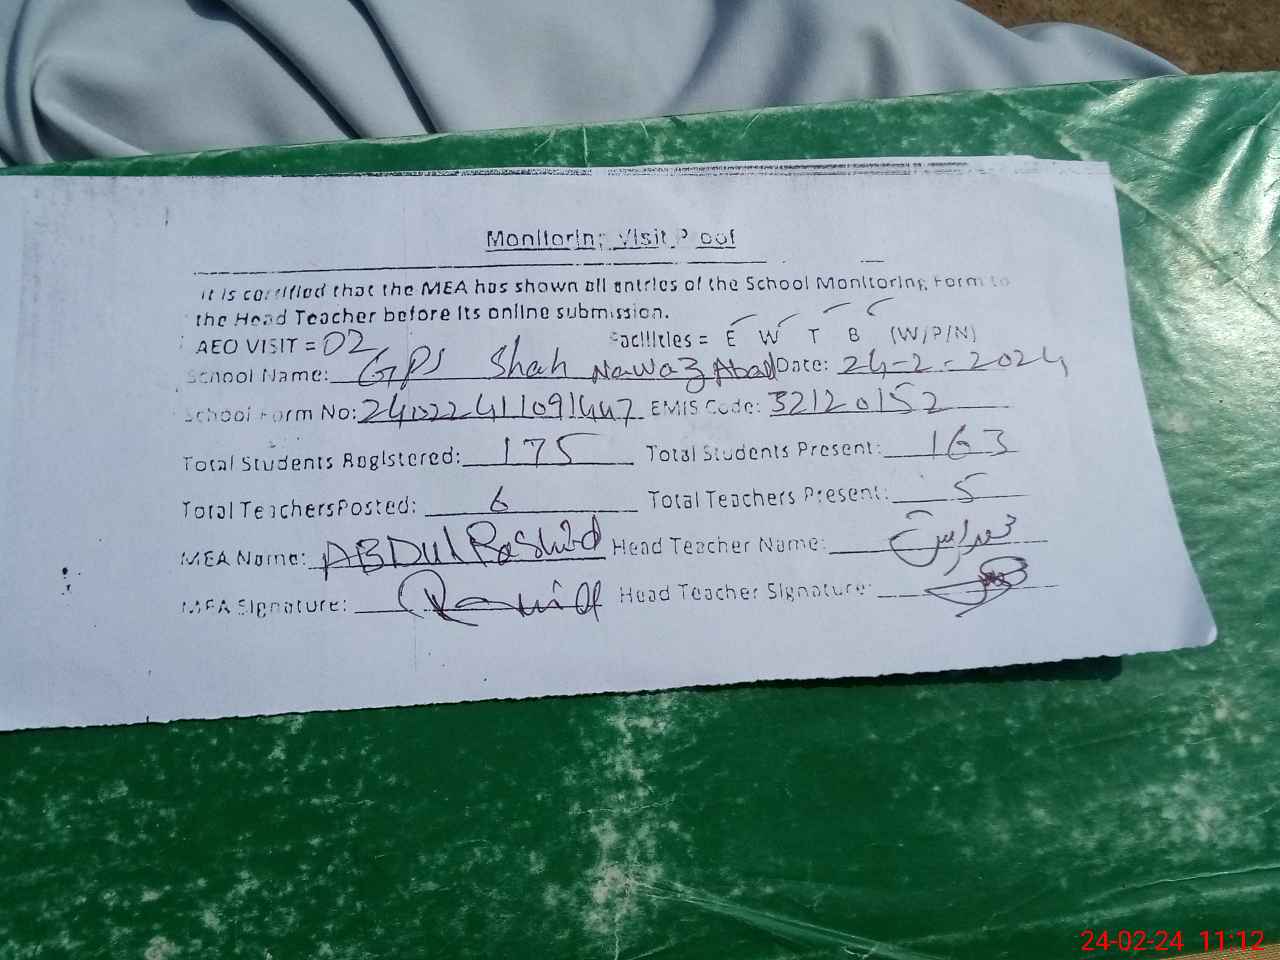 Monitoring Visit Proof
It is certified that the MEA has shown all entries of the School Monitoring Form to
the Head Teacher before its online submission.
AEO VISIT = 02 Facilities = E W T B (W/P/N)
School Name: GPS Shah Nawaz Abad Date: 24-2-2024
School Form No: EMIS Code: 32120152
Total Students Registered: 175 Total Students Present: 163
Total Teachers Posted: 6 Total Teachers Present: 5
MEA Name: ABDul Rashid Head Teacher Name:
MEA Signature: Head Teacher Signature:
24-02-24 11:12